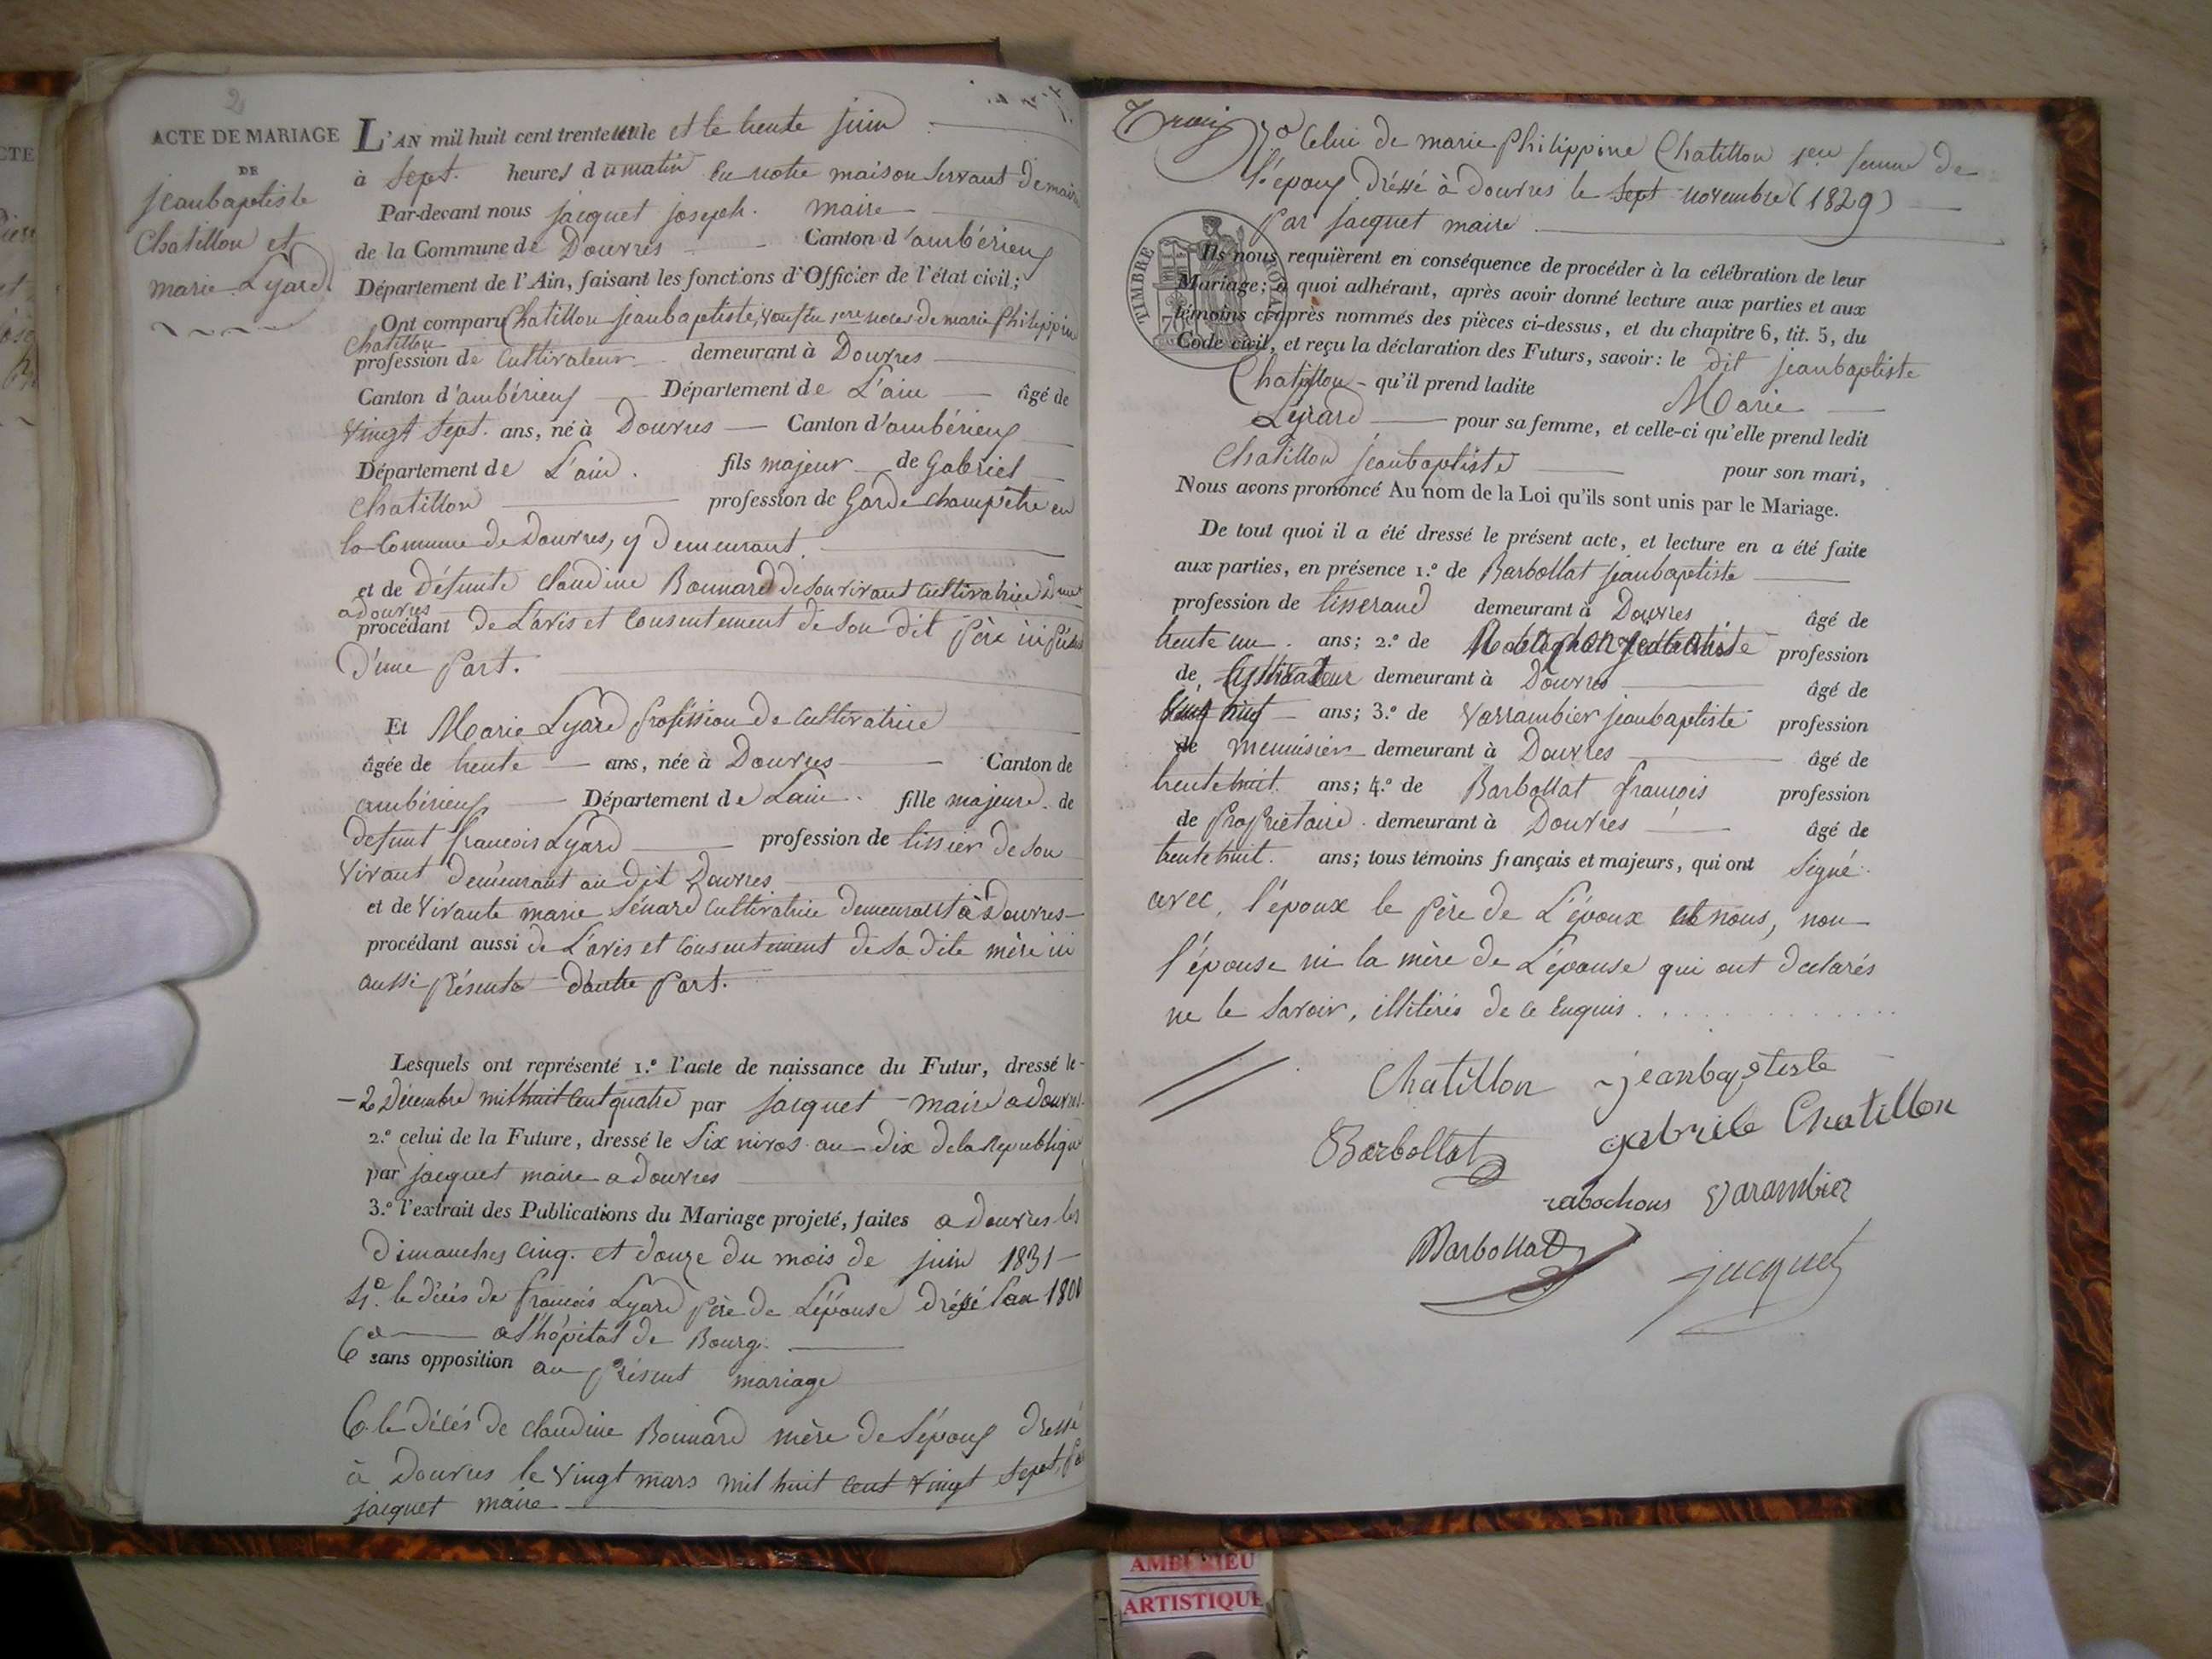 2
ACTE DE MARIAGE
DE
jeanbaptiste
Chatillon et
marie Lyard
L'AN mil huit cent trente et le trente juin
à Sept heures du matin en notre maison servant de mairie
Par-devant nous jacquet joseph maire
de la Commune de Douvres Canton d'ambérieux
Département de l'Ain, faisant les fonctions d'Officier de l'état civil;
Ont comparu Chatillon jeanbaptiste, veuf en 1ere noces de marie Philippine
Chatillon
profession de Cultivateur demeurant à Douvres
Canton d'ambérieux Département de L'ain âgé de
vingt sept ans, né à Douvres Canton d'ambérieux
Département de L'ain fils majeur de Gabriel
Chatillon profession de Garde champêtre en
la Comune de Douvres, y demeurant.
et de défunte claudine Bonnard de son vivant cultivatrice
a douvres
procédant de L'avis et consentement de son dit père ici présent
D'une part.
Et Marie Lyard profession de cultivatrice
âgée de trente ans, née à Douvres Canton de
ambérieux Département de Lain fille majeure de
defunt francois Lyard profession de tissier de son
vivant demeurant au dit Douvres
et de vivante marie Lénard cultivatrice demeurant à Douvres
procédant aussi de L'avis et consentement de sa dite mère ici
aussi présente d'autre part.
Lesquels ont représenté 1.º l'acte de naissance du Futur, dressé le
2 Décembre mil huit cent quatre par jacquet maire a douvres
2.º celui de la Future, dressé le Six nivos an dix de la republique
par jacquet maire a douvres
3.º l'extrait des Publications du Mariage projeté, faites a Douvres les
Dimanches cinq et douze du mois de juin 1831
4º le décès de francois Lyard père de L'épouse dressé l'an
a l'hôpital de Bourg.
sans opposition au présent mariage
6 le décès de claudine Bonnard mère de l'époux dressé
à Douvres le vingt mars mil huit cent vingt sept, par
jacquet maire
7º Celui de marie Philippine Chatillon 1ere femme de
l'époux dréssé à douvres le sept novembre (1829)
par jacquet maire
TIMBRE ROYAL
70
Ils nous requièrent en conséquence de procéder à la célébration de leur
Mariage; à quoi adhérant, après avoir donné lecture aux parties et aux
témoins ci-après nommés des pièces ci-dessus, et du chapitre 6, tit. 5, du
Code civil, et reçu la déclaration des Futurs, savoir: le dit jeanbaptiste
Chatillon qu'il prend ladite Marie
Lyard pour sa femme, et celle-ci qu'elle prend ledit
Chatillon jeanbaptiste pour son mari,
Nous avons prononcé Au nom de la Loi qu'ils sont unis par le Mariage.
De tout quoi il a été dressé le présent acte, et lecture en a été faite
aux parties, en présence 1.º de Barbollat jeanbaptiste
profession de tisserand demeurant à Douvres âgé de
trente un ans; 2.º de profession
de Cultivateur demeurant à Douvres âgé de
ans; 3.º de Varrambier jeanbaptiste profession
de menuisier demeurant à Douvres âgé de
trente huit ans; 4.º de Barbollat françois profession
de Propriétaire demeurant à Douvres âgé de
trente huit ans; tous témoins français et majeurs, qui ont signé
avec, l'époux le père de L'époux et nous, non
l'épouse ni la mère de L'épouse qui ont déclarés
ne le savoir, illitérés de ce enquis
Chatillon jeanbaptiste
Barbollat gabriele Chatillon
rabochons Varambier
Barbollat jacquet
AMBERIEU
ARTISTIQUE